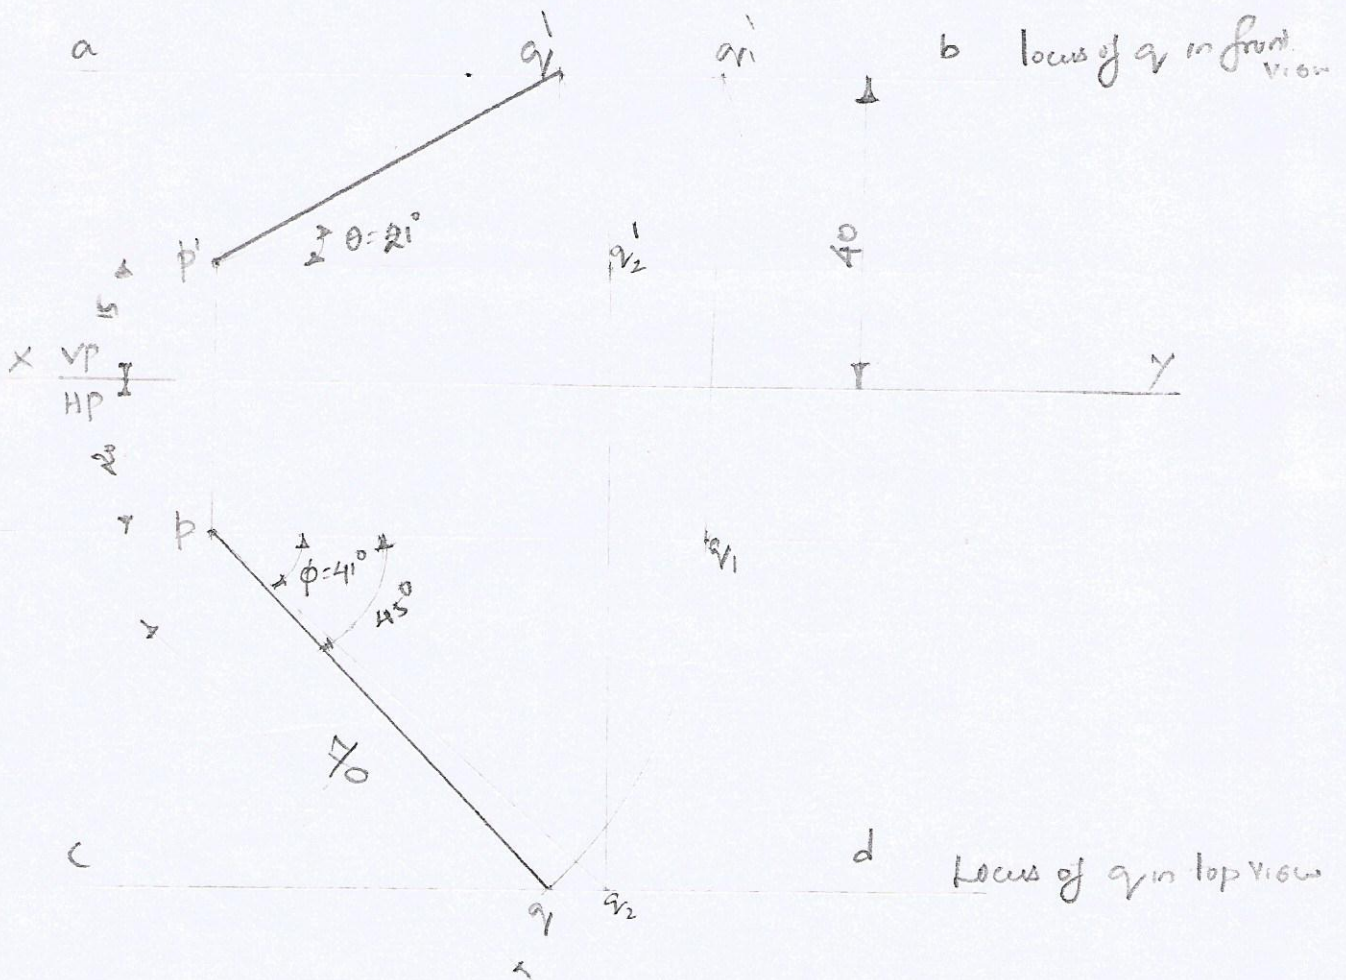 a q' q₁' b locus of q in front
view
p' θ=21° q₂' 40
15
X VP Y
HP
20
p φ=41° q₁
45°
70
c d Locus of q in top view
q q₂